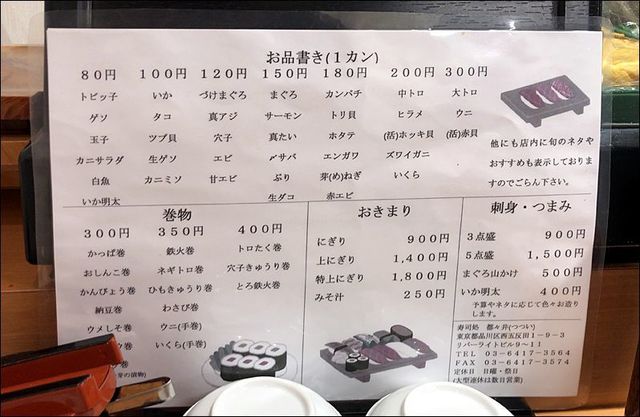 お品書き(1カン)
80円 100円 120円 150円 180円 200円 300円
トビッ子 いか づけまぐろ まぐろ カンパチ 中トロ 大トロ
ゲソ タコ 真アジ サーモン トリ貝 ヒラメ ウニ
玉子 ツブ貝 穴子 真たい ホタテ (活)ホッキ貝 (活)赤貝
カニサラダ 生ゲソ エビ 〆サバ エンガワ ズワイガニ
白魚 カニミソ 甘エビ ぶり 芽(め)ねぎ いくら
いか明太 生ダコ 赤エビ
他にも店内に旬のネタや
おすすめも表示しておりま
すのでごらん下さい。
巻物
300円 350円 400円
かっぱ巻 鉄火巻 トロたく巻
おしんこ巻 ネギトロ巻 穴子きゅうり巻
かんぴょう巻 ひもきゅうり巻 とろ鉄火巻
納豆巻 わさび巻
ウメしそ巻 ウニ(手巻)
巻 いくら(手巻)
の漬物)
おきまり
にぎり 900円
上にぎり 1,400円
特上にぎり 1,800円
みそ汁 250円
刺身・つまみ
3点盛 900円
5点盛 1,500円
まぐろ山かけ 500円
いか明太 400円
予算やネタに応じて色々お造り
します。
寿司処 都々井(つつい)
東京都品川区西五反田1-9-3
リバーライトビル9～11
TEL 03-6417-3564
FAX 03-6417-3574
定休日 日曜・祭日
(大型連休は数日営業)